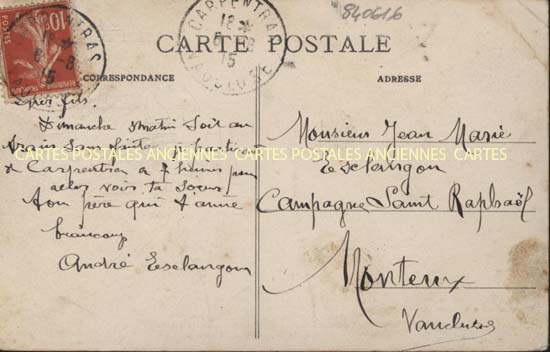 840616
CARTE POSTALE
CORRESPONDANCE
ADRESSE
10c
POSTES
CARPENTRAS
18
15
VAUCLUSE
CARTES POSTALES ANCIENNES CARTES POSTALES ANCIENNES CARTES
fils.
Dimanche matin soit au
train sans faute
Carpentras a 7 heures pour
aller voir ta soeur
ton père qui t'aime
beaucoup
André Esclangon
Monsieur Jean Marie
Esclangon
Campagne Saint Raphaël
Monteux
Vaucluse